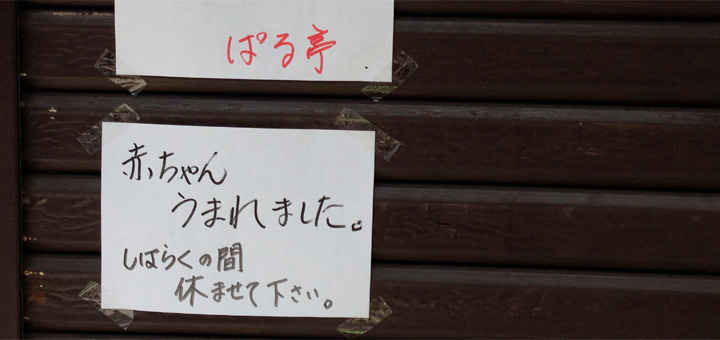 ぱる亭
赤ちゃん
うまれました。
しばらくの間
休ませて下さい。